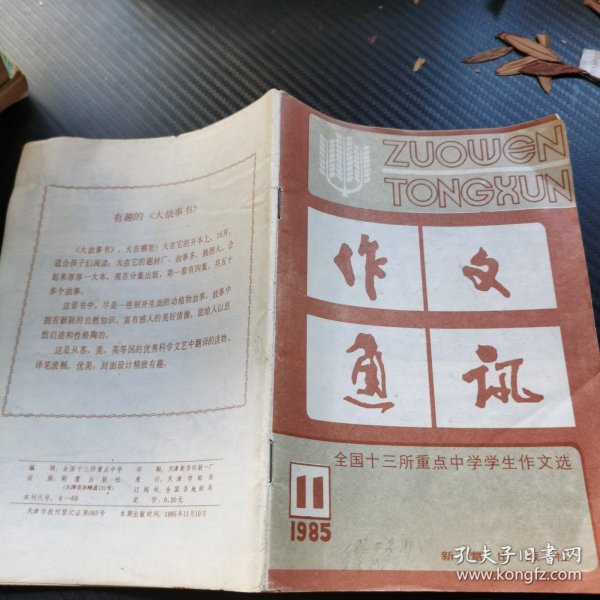 有趣的《大故事书》
《大故事书》，大在哪里？大在它的开本上，16开，
适合孩子们阅读；大在它的题材广、故事多、插图大，合
起来厚厚一大本。现在分集出版，第一套有四集，共五十
多个故事。
这套书中，尽是一些别开生面的动植物故事。故事中
拥有新新的自然知识，富有感人的美好情操，能给人以思
想启迪和性格陶冶。
这是从苏、美、英等国的优秀科学文艺中翻译的读物，
译笔流畅，优美、封面设计精致有趣。
编辑：全国十三所重点中学
出版：新蕾出版社
(天津市赤峰道131号)
本刊代号：6—69
印刷：天津新华印刷一厂
发行：天津市邮局
订阅处：全国各地邮局
定价：0.20元
天津市报刊登记证第093号
本期出版时间：1985年11月10日
ZUOWEN
TONGXUN
作文
通讯
全国十三所重点中学学生作文选
11
1985
新蕾
孔夫子旧书网
www.kongfz.com